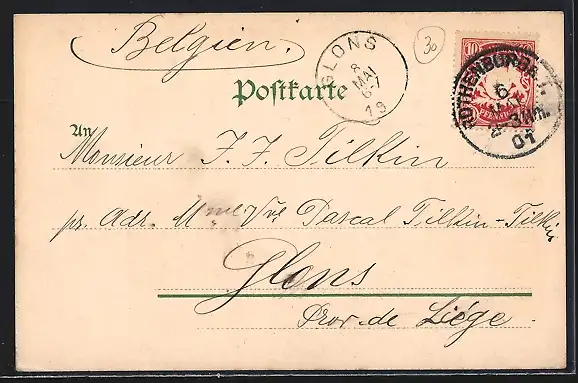 Belgien.
GLONS
8
MAI
6-7
19
30
10
PFENNIG
ROTHENBURG
6
01
Postkarte
An
Monsieur J. J. Tilkin
pr. Adr. Mme Vve Pascal Tilkin-Tilkin
Glons
Prov. de Liége.